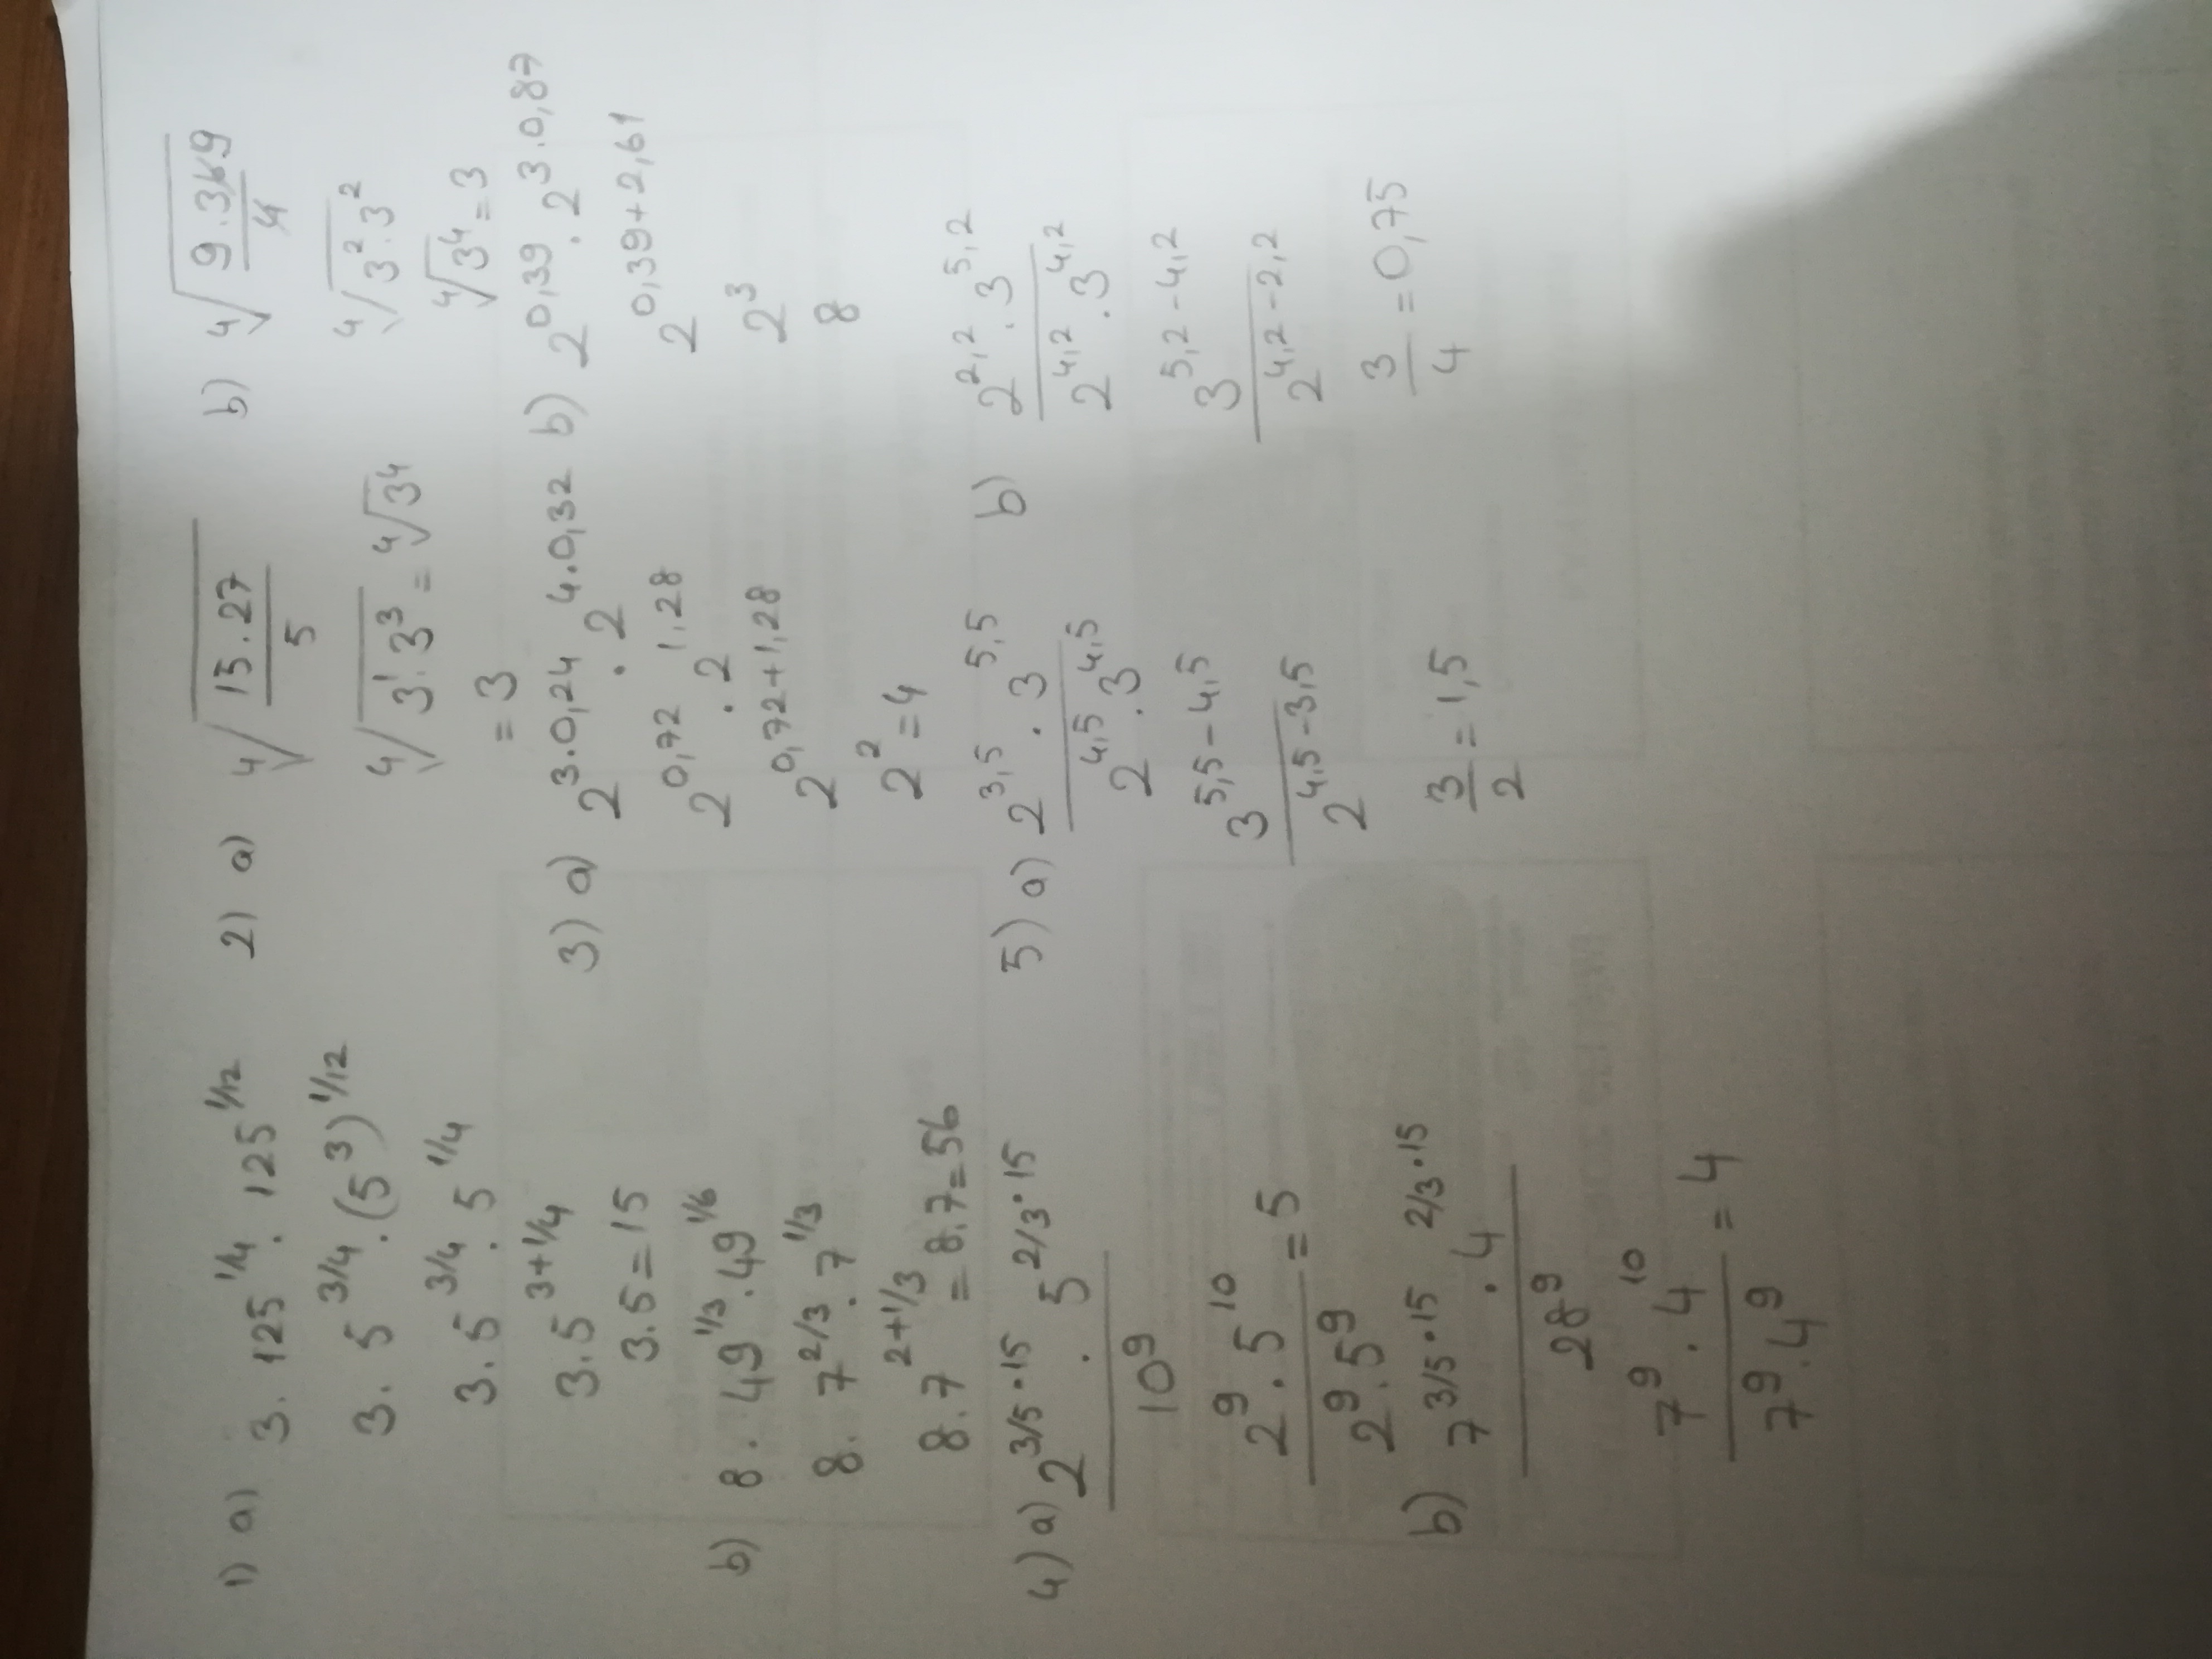 1) a) 3 · 125^1/4 · 125^1/12
3 · 5^3/4 · (5^3)^1/12
3 · 5^3/4 · 5^1/4
3 · 5^3+1/4
3 · 5 = 15
b) 8 · 49^1/3 · 49^1/6
8 · 7^2/3 · 7^1/3
8 · 7^2+1/3 = 8 · 7 = 56
4) a) 2^3/5·15 · 5^2/3·15
10^9
2^9 · 5^10 = 5
2^9 · 5^9
b) 7^3/5·15 · 4^2/3·15
28^9
7^9 · 4^10 = 4
7^9 · 4^9
2) a) ⁴√ 15 · 27
5
⁴√ 3^1 · 3^3 = ⁴√3^4
= 3
b) ⁴√ 9 · 36 9
4
⁴√ 3^2 · 3^2
⁴√3^4 = 3
3) a) 2^3·0,24 · 2^4·0,32
2^0,72 · 2^1,28
2^0,72+1,28
2^2 = 4
b) 2^0,39 · 2^3·0,87
2^0,39+2,61
2^3
8
5) a) 2^3,5 · 3^5,5
2^4,5 · 3^4,5
3^5,5-4,5
2^4,5-3,5
3 = 1,5
2
b) 2^2,2 · 3^5,2
2^4,2 · 3^4,2
3^5,2-4,2
2^4,2-2,2
3 = 0,75
4